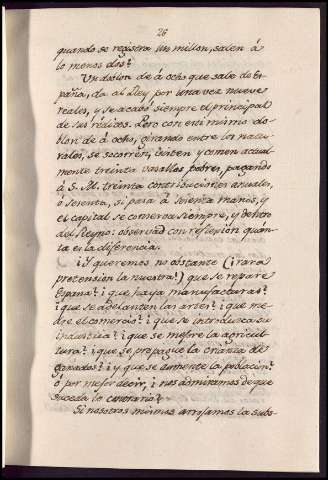 26
quando se registra un millon, salen á
lo menos dos?
Un doblon de á ocho que sale de Es-
paña, da al Rey por una vez nueve
reales, y se acabó siempre el principal
de sus réditos. Pero con ese mismo do-
blon de á ocho, girando entre los natu-
rales, se socorren, visten y comen actual-
mente treinta vasallos pobres, pagando
á S. M. treinta contribuciones anuales,
ó sesenta, si pasa á sesenta manos, y
el capital se conserva siempre, y dentro
del Reyno: observad con reflexion quan-
ta es la diferencia.
¿Y queremos no obstante (¡rara
pretension la nuestra!) que se repare
España? ¿que haya manufacturas?
¿que se adelanten las artes? ¿que me-
dre el comercio? ¿que se introduzca su
industria? ¿que se mejore la agricul-
tura? ¿que se propague la crianza de
ganados? ¿y que se aumente la poblacion?
ó por mejor decir, ¿nos admiramos de que
suceda lo contrario?
Si nosotros mismos arrojamos la subs-